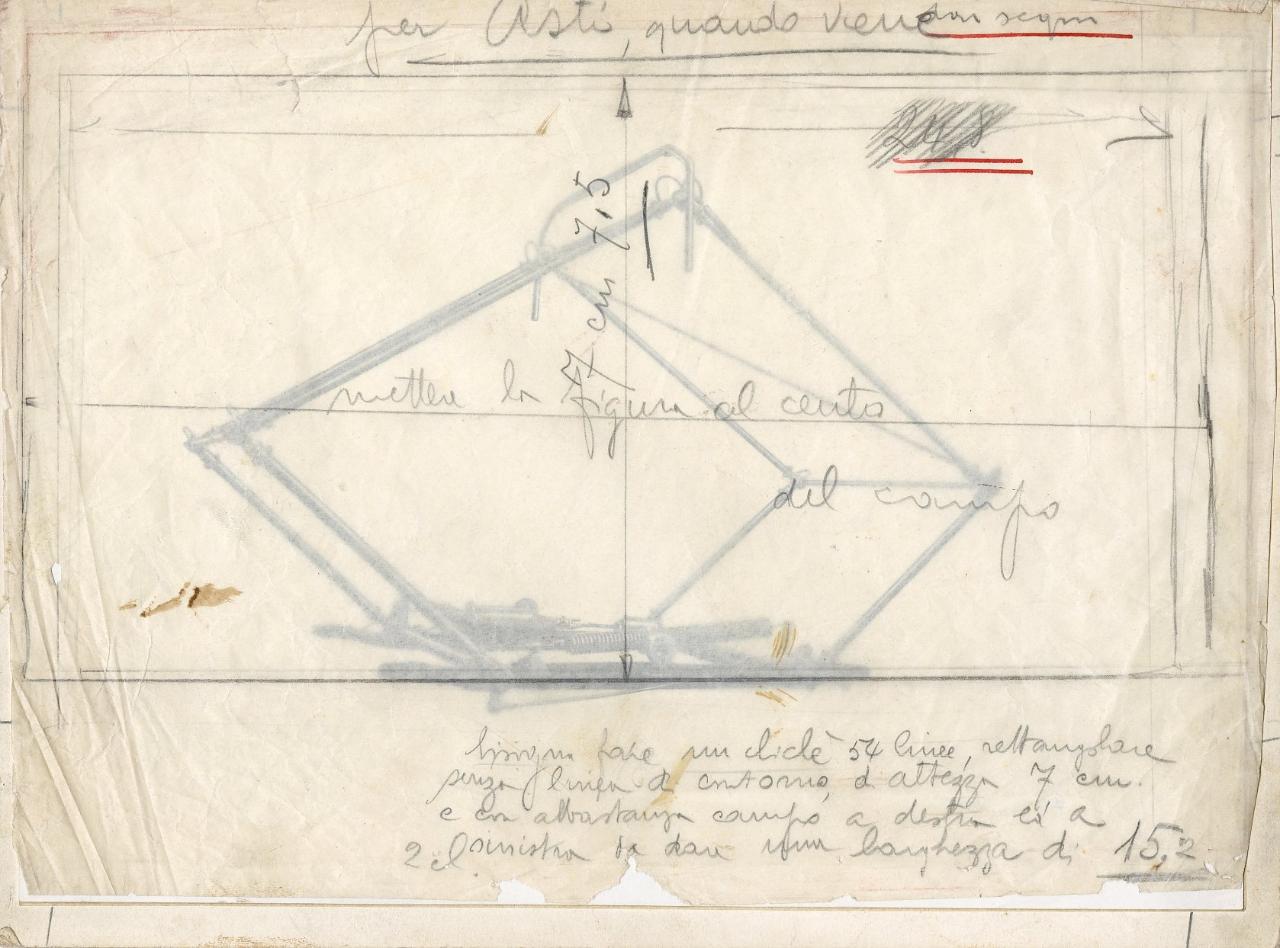 per Asti, quando viene
24,8
7 cm 7,5
mettere la figura al centro
del campo
bisogna fare un clichè 54 linee, rettangolare
senza linea di contorno, di altezza 7 cm.
e con abbastanza campo a destra ed a
sinistra da dare una larghezza di 15,2